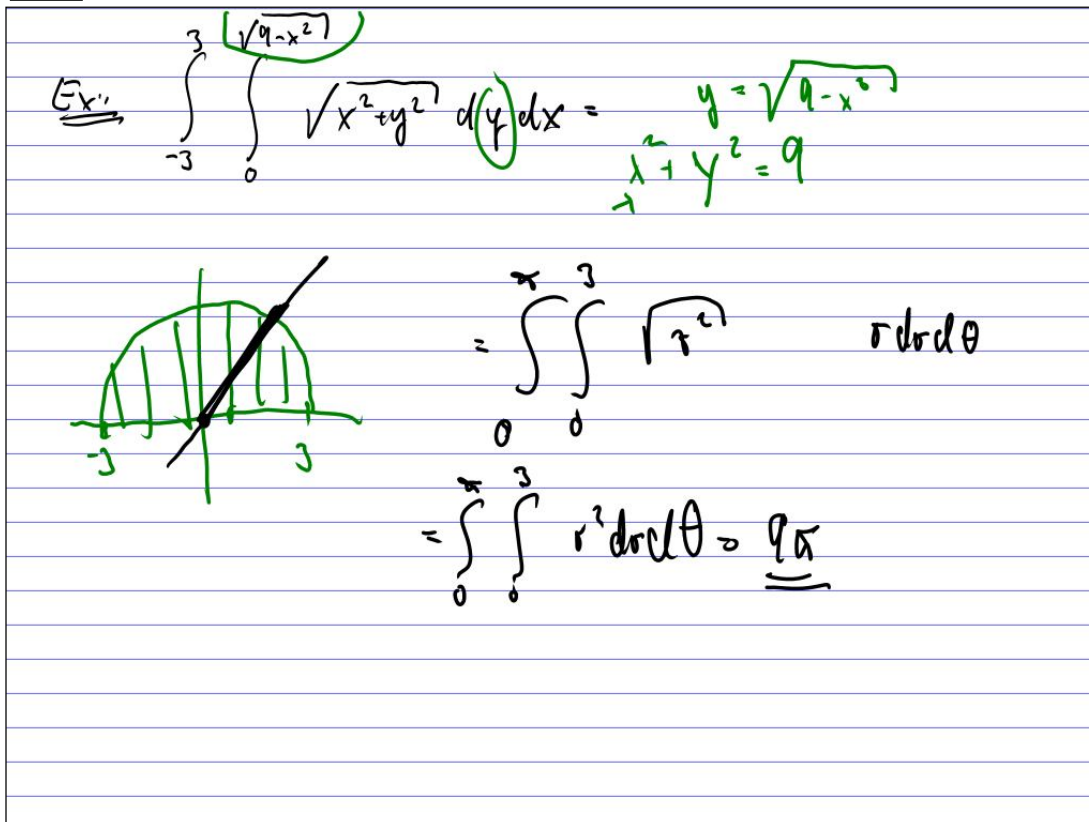 Ex: ∫_{-3}^{3} ∫_{0}^{√(9-x²)} √(x²+y²) dy dx =
y = √(9-x²)
x² + y² = 9
-3 3
= ∫_{0}^{π} ∫_{0}^{3} √(r²) r dr dθ
= ∫_{0}^{π} ∫_{0}^{3} r² dr dθ = 9π